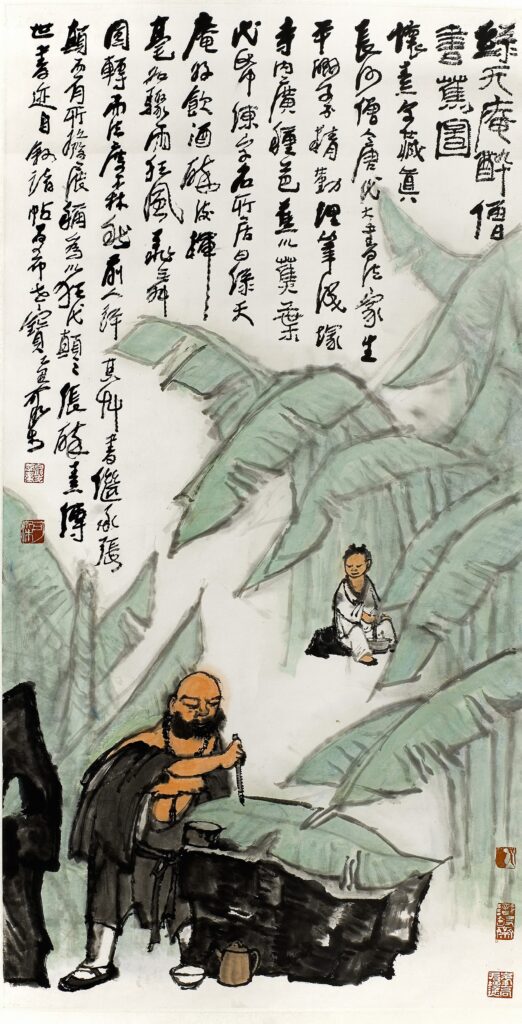 綠天庵醉僧
書蕉圖
懷素字藏真
長沙僧人唐代大書法家生
平精勤埋筆成塚
寺内廣種芭蕉以蕉葉
代帋練字名所居曰綠天
庵好飲酒醉後揮
毫如驟雨狂風飛舞
圓轉而法度井然前人評其艸書繼承張
顛而有所發展稱為以狂代顛顛張醉素傳
世書迹自叙諸帖